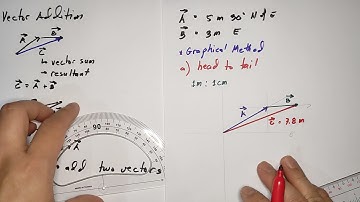 Vector Addition
A B
C
↳ vector sum
↳ resultant
C = A + B
90
• add two vectors
A = 5 m 30° N of E
B = 3 m E
Graphical Method
a) head to tail
1m : 1cm
B
A
C = 7.8 m